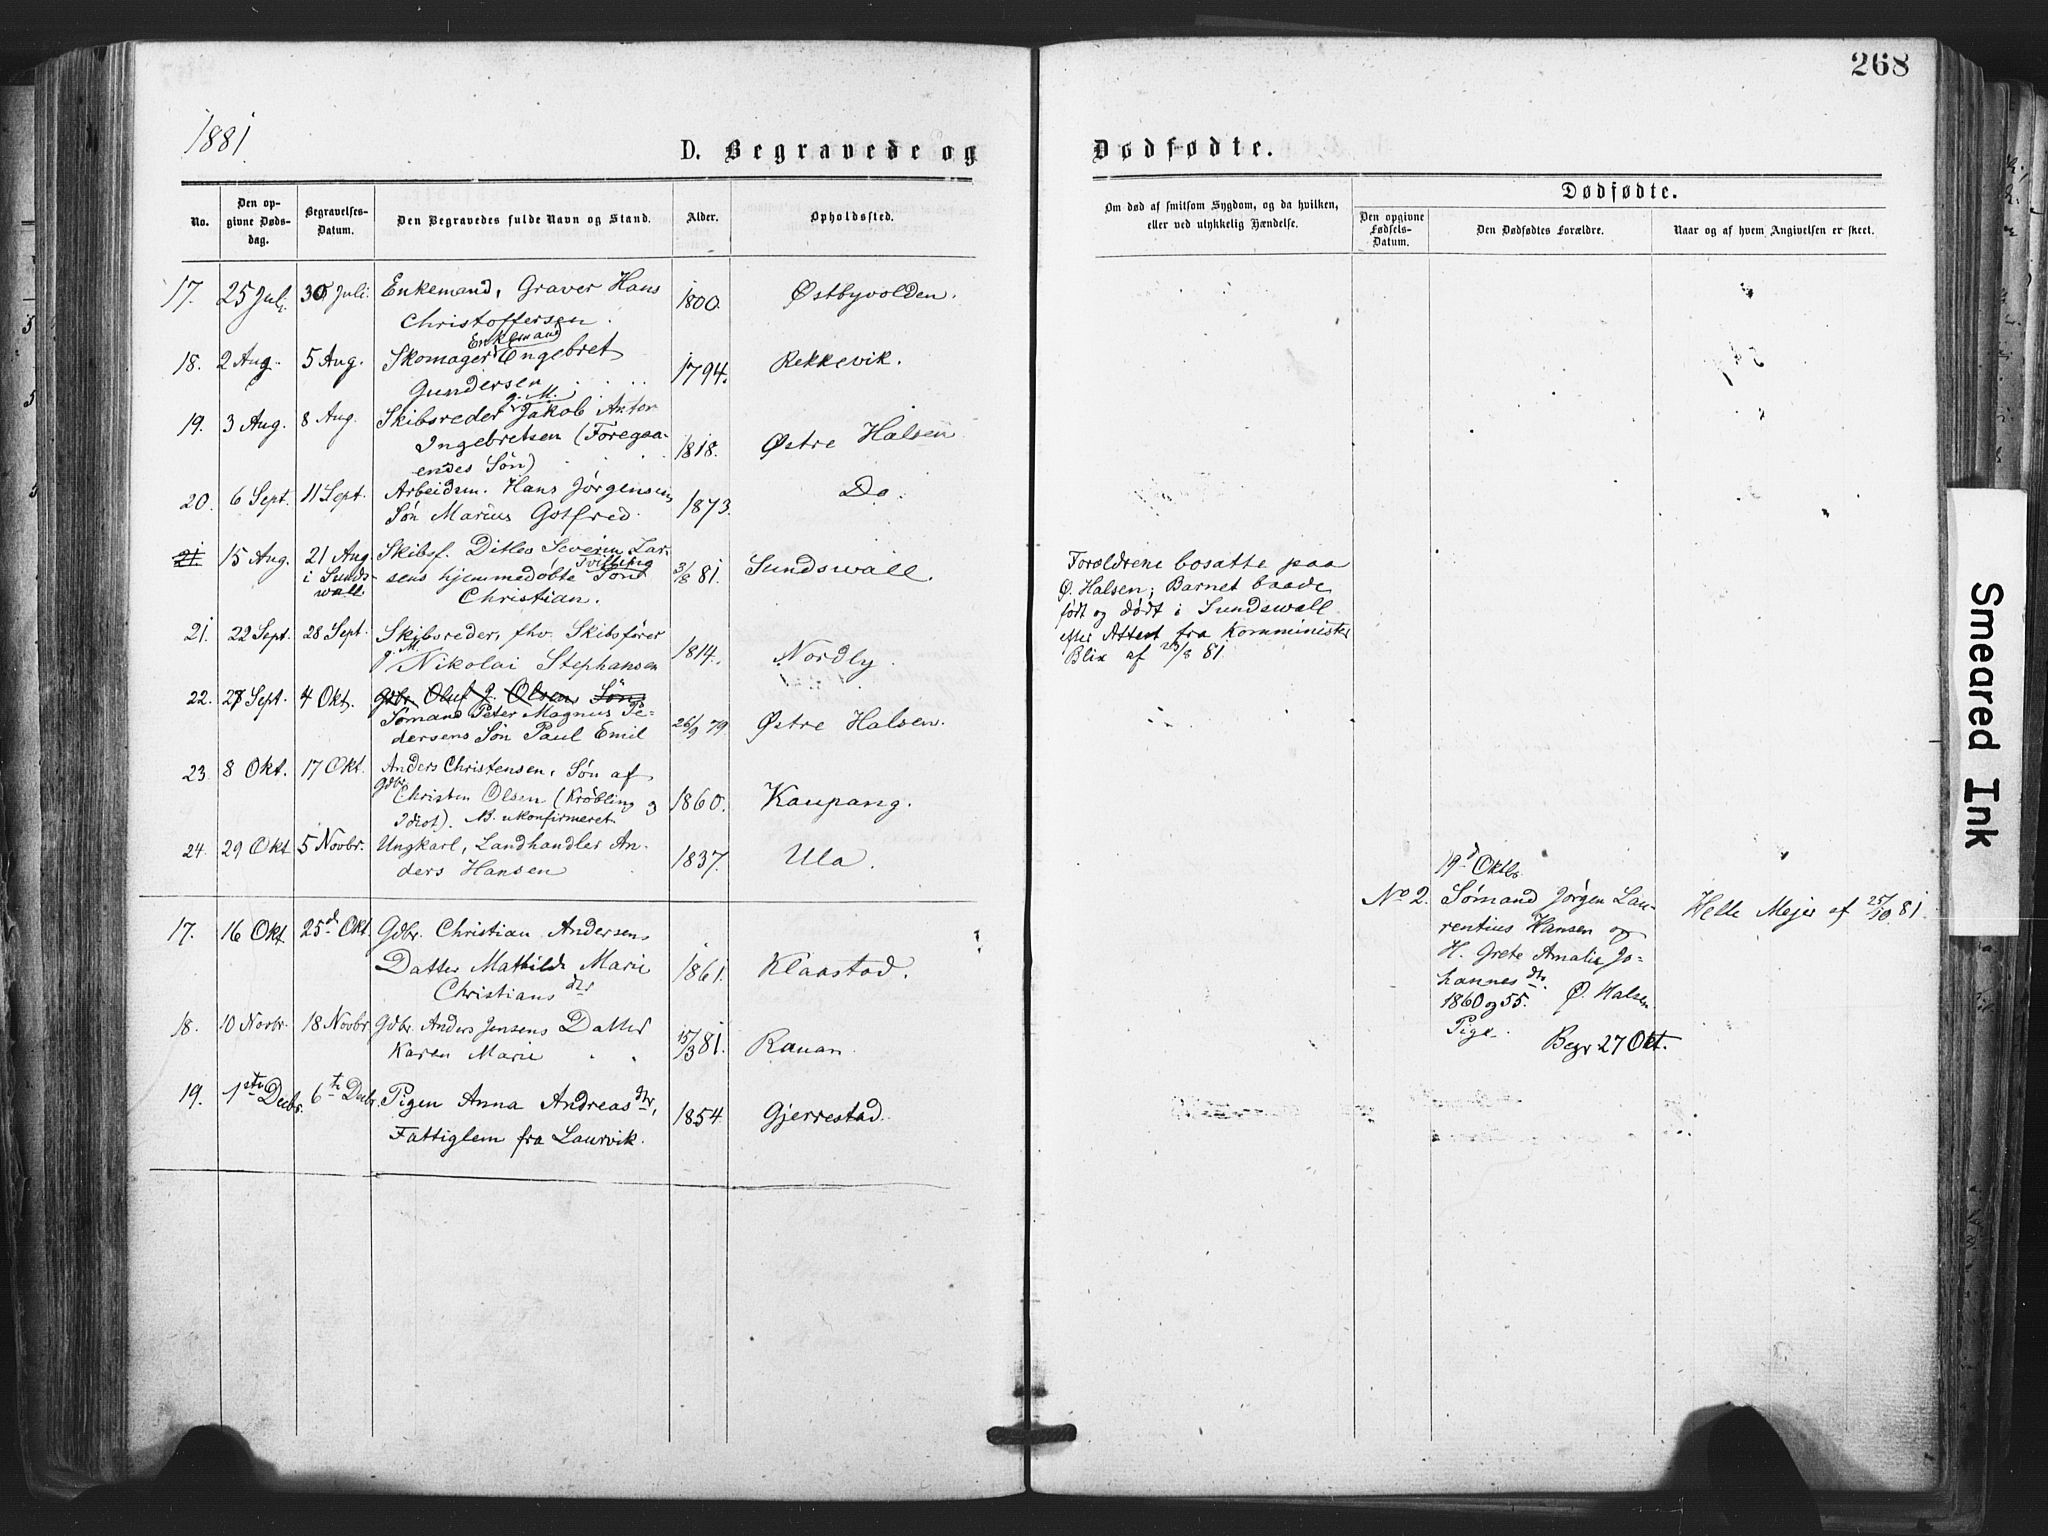 268
1881
D. Begravede og
Dødfødte.
No.
Den opgivne Dødsdag.
Begravelses-Datum.
Den Begravedes fulde Navn og Stand.
Alder.
Opholdssted.
Om død af smitsom Sygdom, og da hvilken,
eller ved ulykkelig Hændelse.
Dødfødte.
Den opgivne Fødsels-Datum.
Den Dødfødtes Forældre.
Naar og af hvem Angivelsen er skeet.
17. 25 Juli 30 Juli. Enkemand, Graver Hans 1800. Østbyvolden.
Christoffersen.
Enkemand
18. 2 Aug. 5 Aug. Skomager Engebret 1794. Rekkevik.
Gundersen
g. M.
19. 3 Aug. 8 Aug. Skibsreder Jakob Anton 1818. Østre Halsen
Ingebretsen (Foregaa-
endes Søn)
20. 6 Sept. 11 Sept. Arbeidsm. Hans Jørgensens 1873. Do.
Søn Marius Gotfred.
21. 15 Aug. 21 Aug. Skibsf. Ditlev Severin Lar- 3/8 81. Sundswall.
i Sunds- sens hjemmedøbte Tvilling Søn
wall. Christian.
Forældrene bosatte paa
Ø. Halsen; Barnet baade
født og dødt i Sundswall
efter Attest fra Komminister
Blix af 23/8 81.
21. 22 Sept. 28 Sept. Skibsreder, fhv. Skibsfører 1814. Nordly.
g. M. Nikolai Stephansen
22. 27 Sept. 4 Okt. Gdbr. Oluf J. Olsens Søn
Sømand Peter Magnus Pe- 26/9 79 Østre Halsen.
dersens Søn Paul Emil
23. 8 Okt. 17 Okt. Anders Christensen, Søn af 1860. Kaupang.
Gdbr. Christen Olsen (Krøbling og
Idiot). NB. ukonfirmeret.
24. 29 Okt 5 Novbr. Ungkarl, Landhandler An- 1837. Ula.
ders Hansen
17. 16 Okt 25d Okt. Gdbr. Christian Andersens
Datter Mathilde Marie 1861. Klaastad.
Christiansdtr
18. 10 Novbr. 18 Novbr. Gdbr. Anders Jensens Datter 15/3 81. Rauan.
Karen Marie
19. 1ste Decbr. 6te Decbr. Pigen Anna Andreasdtr, 1854 Gjerrestad.
Fattiglem fra Laurvik.
19d Oktbr.
No 2. Sømand Jørgen Lau- Helle Mejer af 25/10 81.
rentius Hansen og
H. Grete Amalie Jo-
hannesdtr.
1860 og 55. Ø. Halsen
Pige.
Begr. 27 Okt.
Smeared Ink